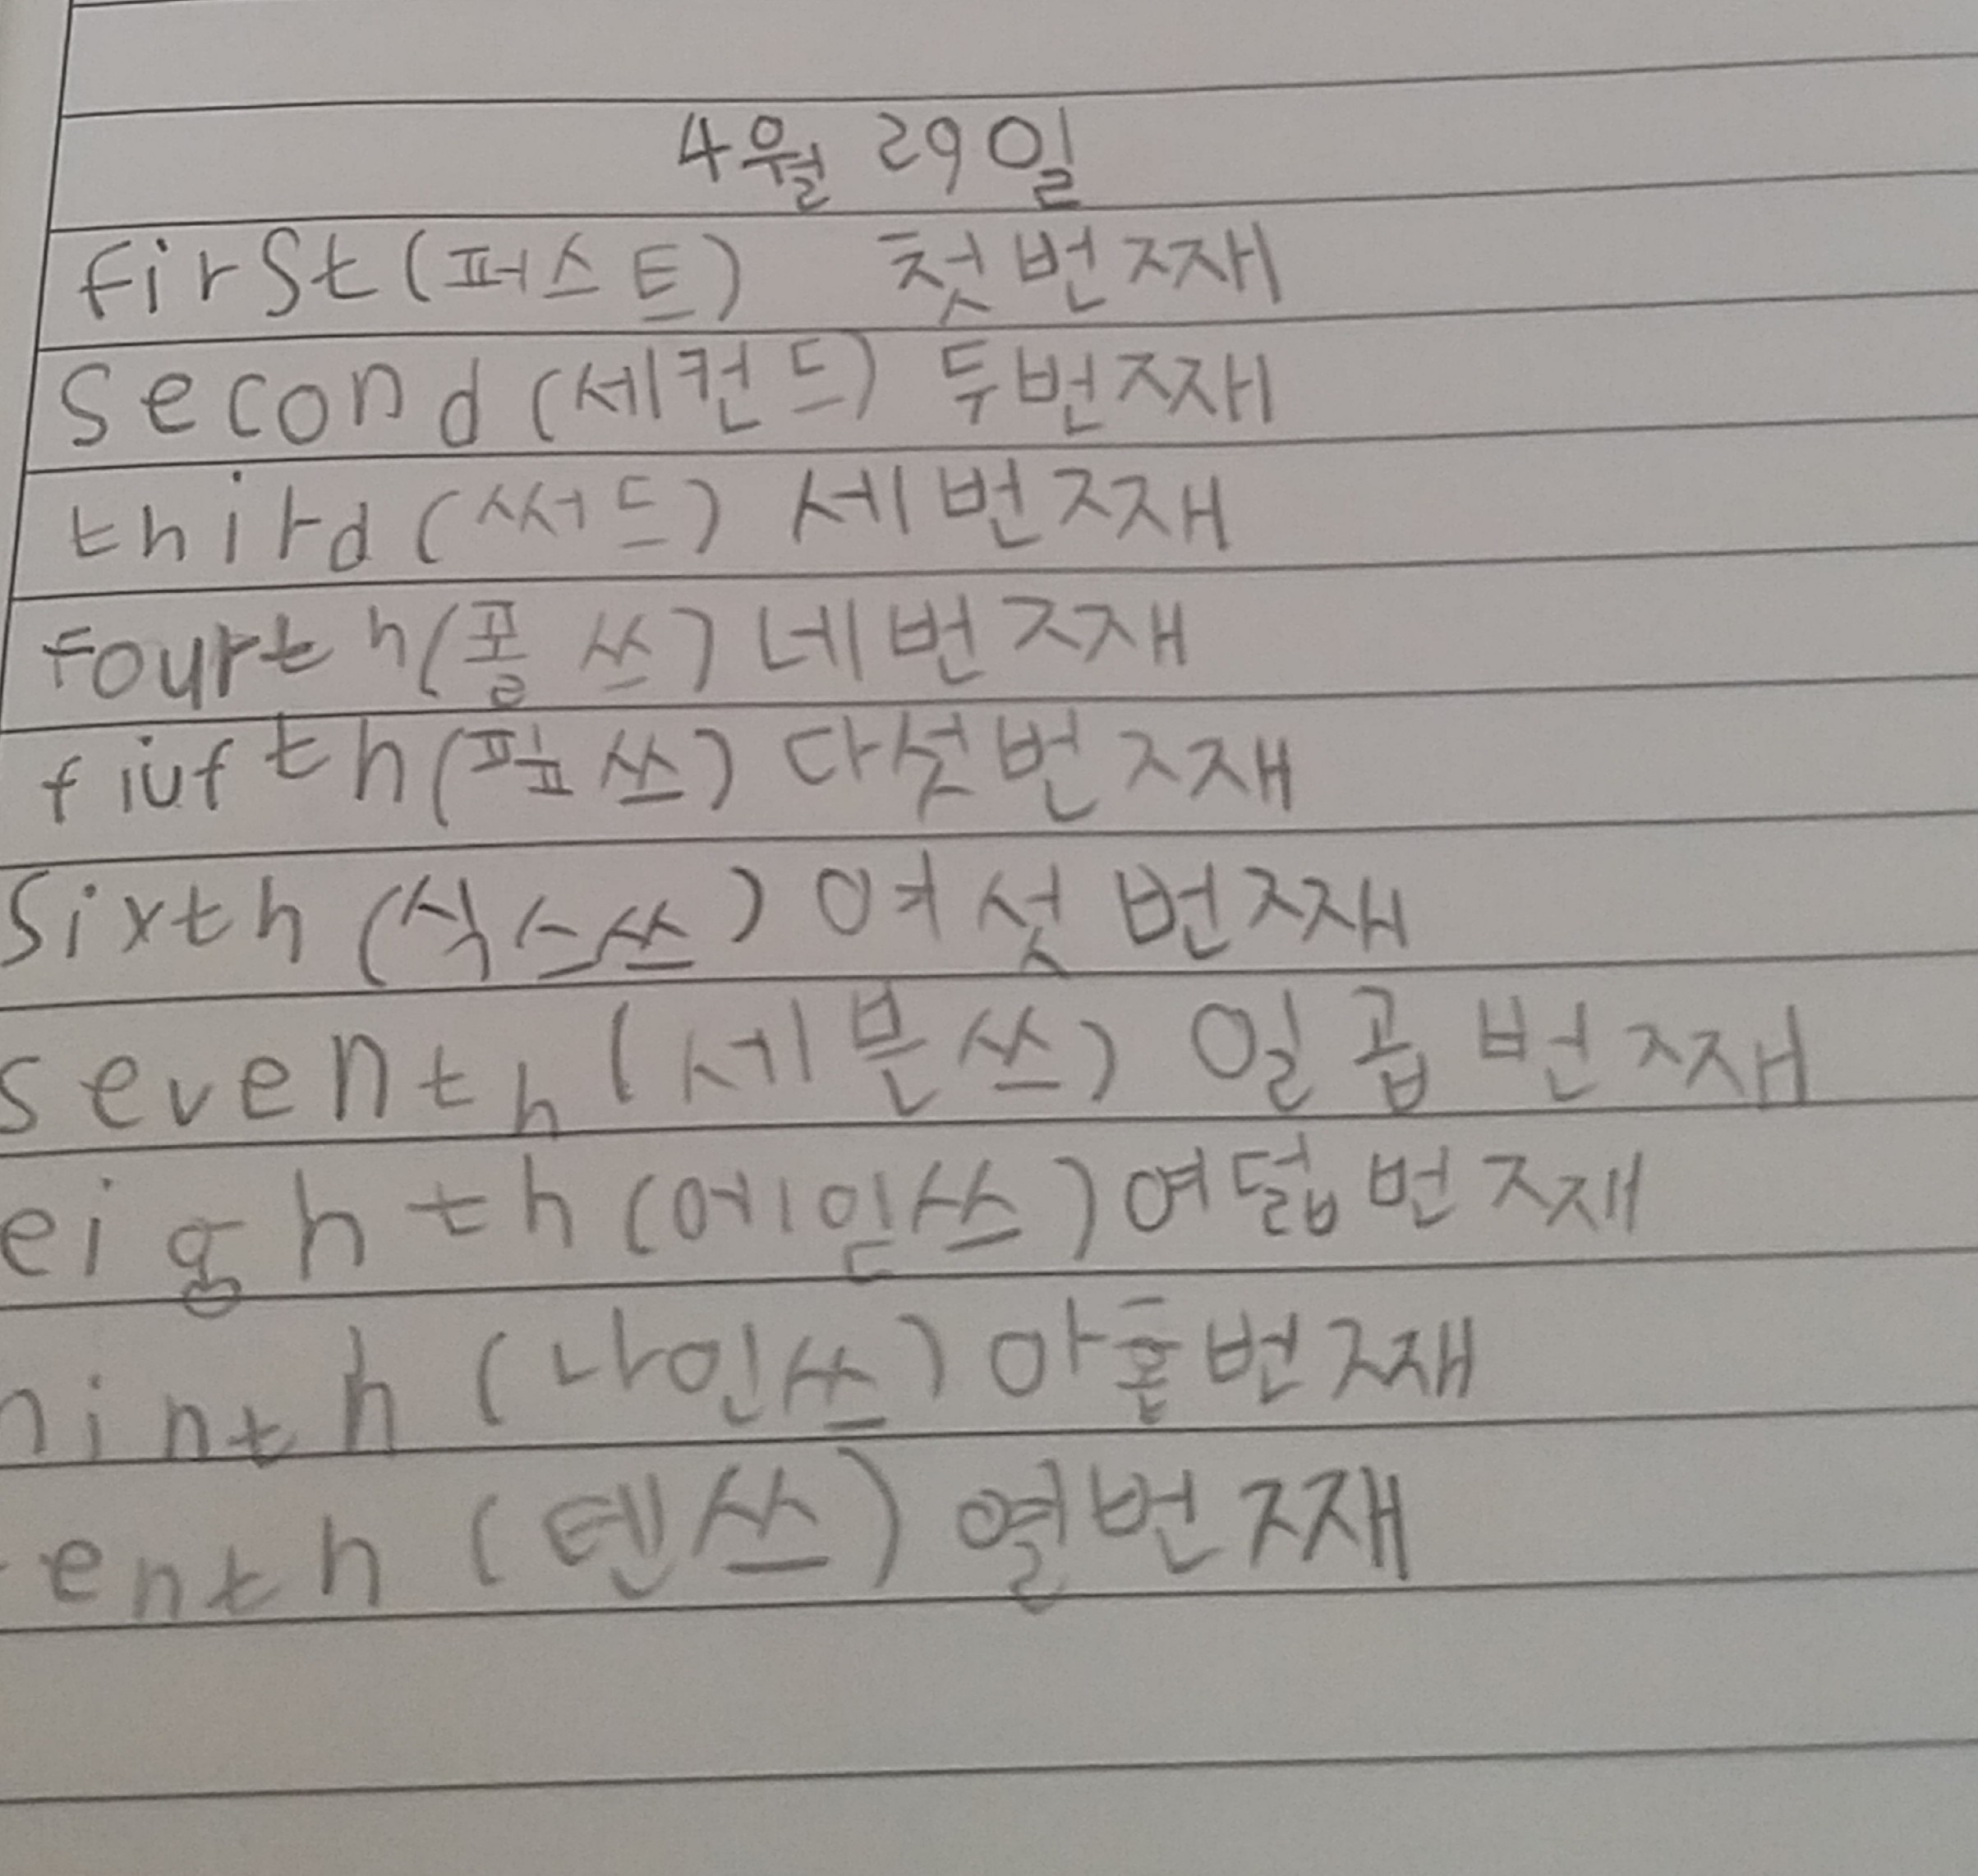 4월 29일
first (퍼스트) 첫번째
second (세컨드) 두번째
third (써드) 세번째
fourth (폼쓰) 네번째
fiufth (핖쓰) 다섯번째
sixth (식스쓰) 여섯번째
seventh (세븐쓰) 일곱번째
eighth (에읻쓰) 여덟번째
ninth (나인쓰) 아홉번째
enth (텐쓰) 열번째